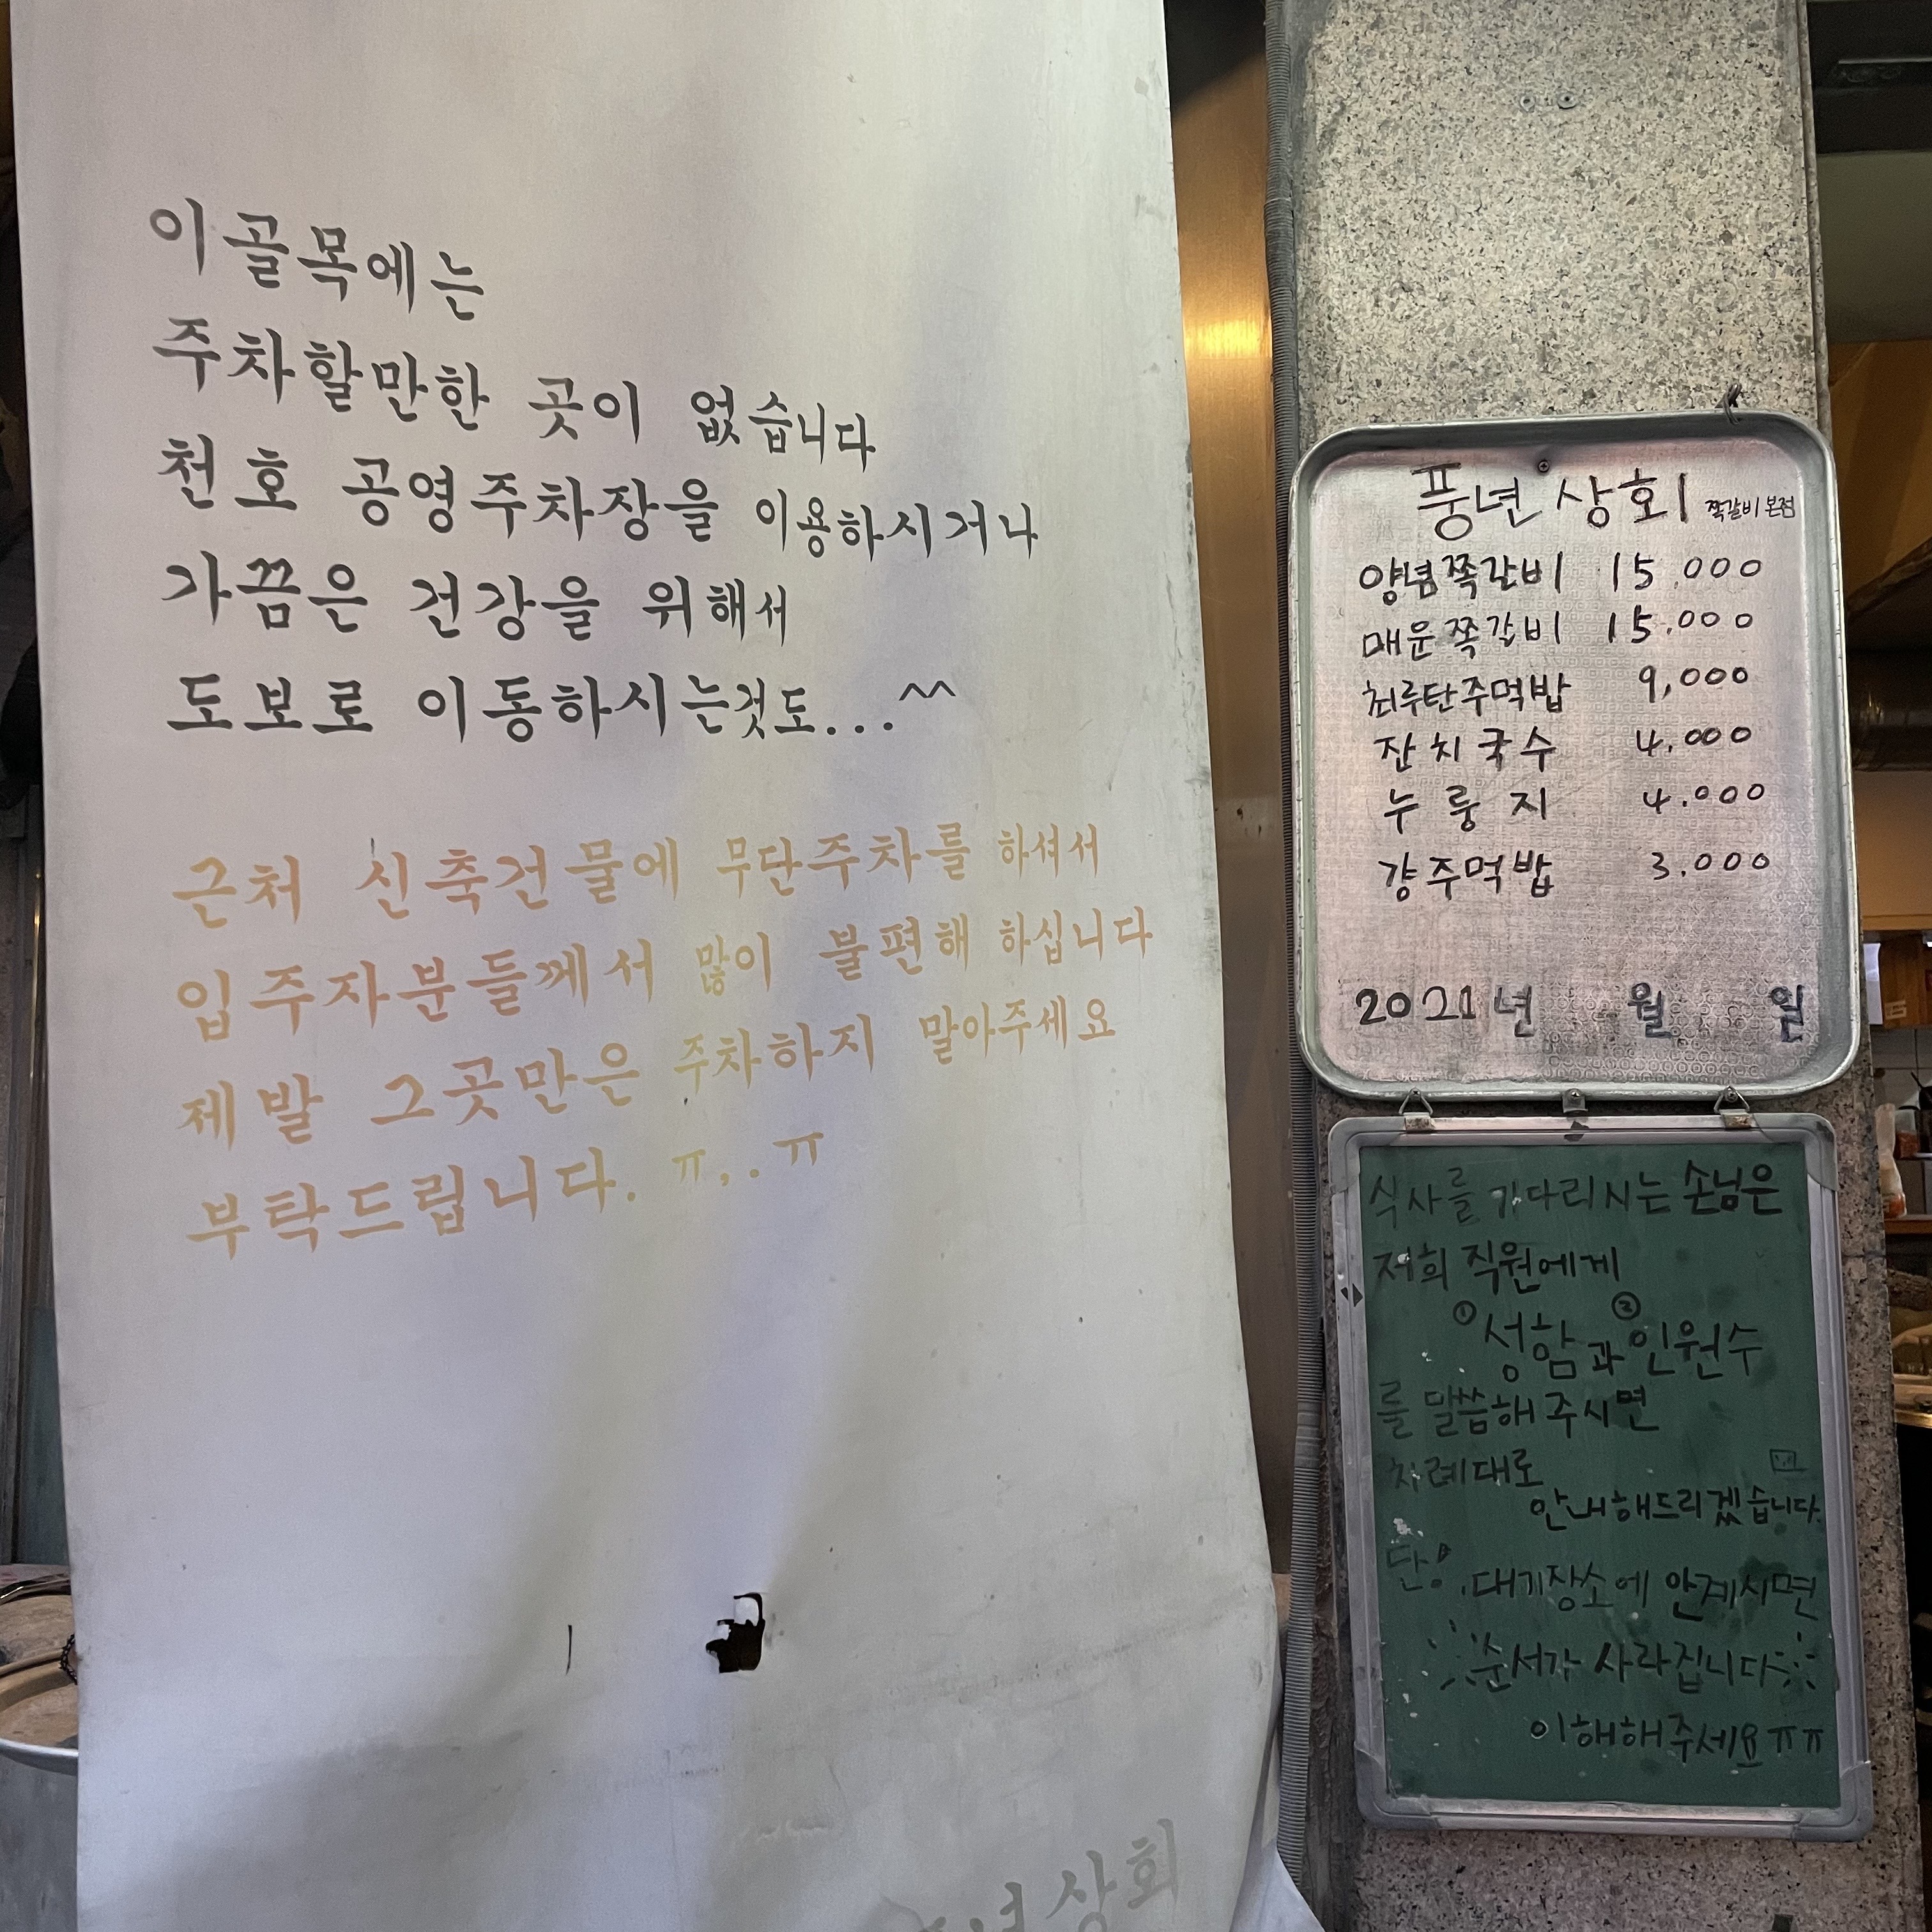 이골목에는
주차할만한 곳이 없습니다
천호 공영주차장을 이용하시거나
가끔은 건강을 위해서
도보로 이동하시는것도...^^
근처 신축건물에 무단주차를 하셔서
입주자분들께서 많이 불편해 하십니다
제발 그곳만은 주차하지 말아주세요
부탁드립니다. ㅠ,.ㅠ
년상회
풍년상회 쪽갈비 본점
양념쪽갈비 15,000
매운쪽갈비 15,000
최루탄주먹밥 9,000
잔치국수 4,000
누룽지 4,000
걍주먹밥 3,000
2021년 월 일
식사를 기다리시는 손님은
저희 직원에게
①성함과 ②인원수
를 말씀해 주시면
차례대로
안내해드리겠습니다.
단!, 대기장소에 안계시면
순서가 사라집니다
이해해주세요ㅠㅠ